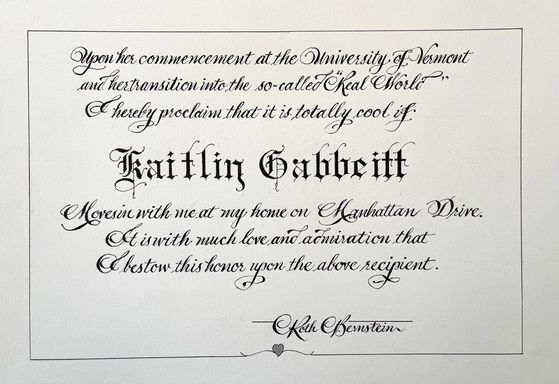 Upon her commencement at the University of Vermont
and her transition into the so-called "Real World"
I hereby proclaim that it is totally cool if
Kaitlin Gabbeitt
Moves in with me at my home on Manhattan Drive.
It is with much love and admiration that
I bestow this honor upon the above recipient.
Roth Bernstein